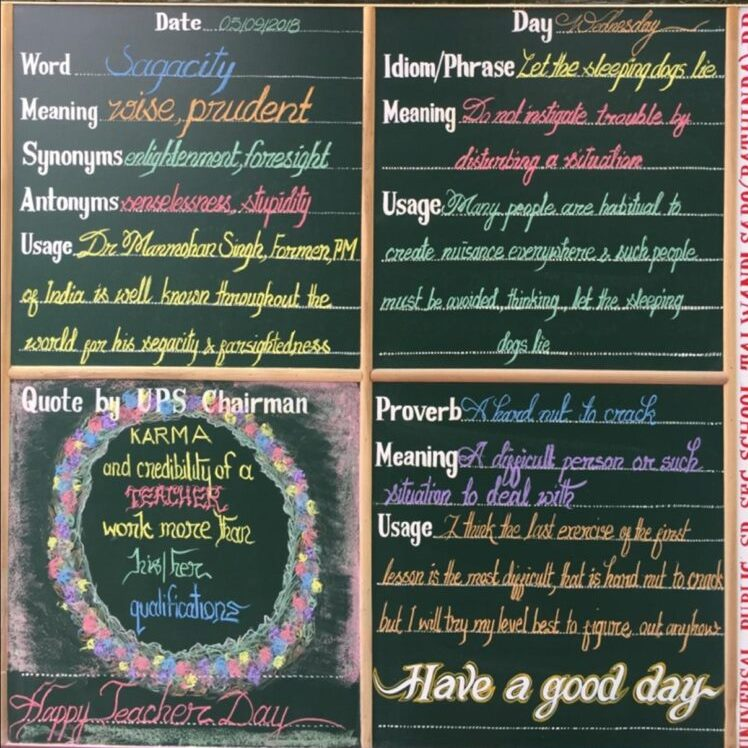 Date 05/09/2018
Word Sagacity
Meaning wise, prudent
Synonyms enlightenment, foresight
Antonyms senselessness, stupidity
Usage Dr Manmohan Singh, Former, PM
of India is well known throughout the
world for his segacity & farsightedness
Day Wednesday
Idiom/Phrase Let the sleeping dogs lie
Meaning Do not instigate trouble by
disturbing a situation
Usage Many people are habitual to
create nuisance everywhere & such people
must be avoided, thinking, let the sleeping
dogs lie
Quote by UPS Chairman
KARMA
and credibility of a
TEACHER
work more than
his/her
qualifications
Happy Teacher Day
Proverb A hard nut to crack
Meaning A difficult person or such
situation to deal with
Usage I think the last exercise of the first
lesson is the most difficult, that is hard nut to crack
but I will try my level best to figure out anyhow
Have a good day